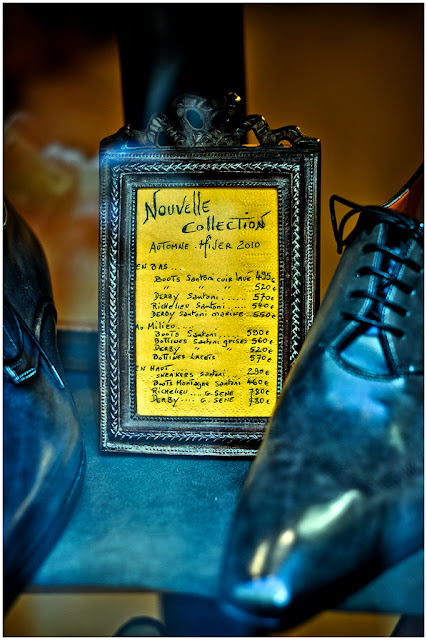 Nouvelle
Collection
Automne. Hiver 2010
EN BAS...
Boots Santoni cuir lavé 495€
" " " 520€
Derby Santoni...... 570€
Richelieu Santoni.... 540€
Derby Santoni marine 550€
Au Milieu....
Boots Santoni..... 590€
Bottines Santoni grises 560€
Derby " 520€
Bottines Lacets 570€
EN HAUT...
Sneakers Santoni.... 290€
Boots Montagne Santoni 460€
Richelieu .... G. SENE 780€
Derby .... G. SENE 780€